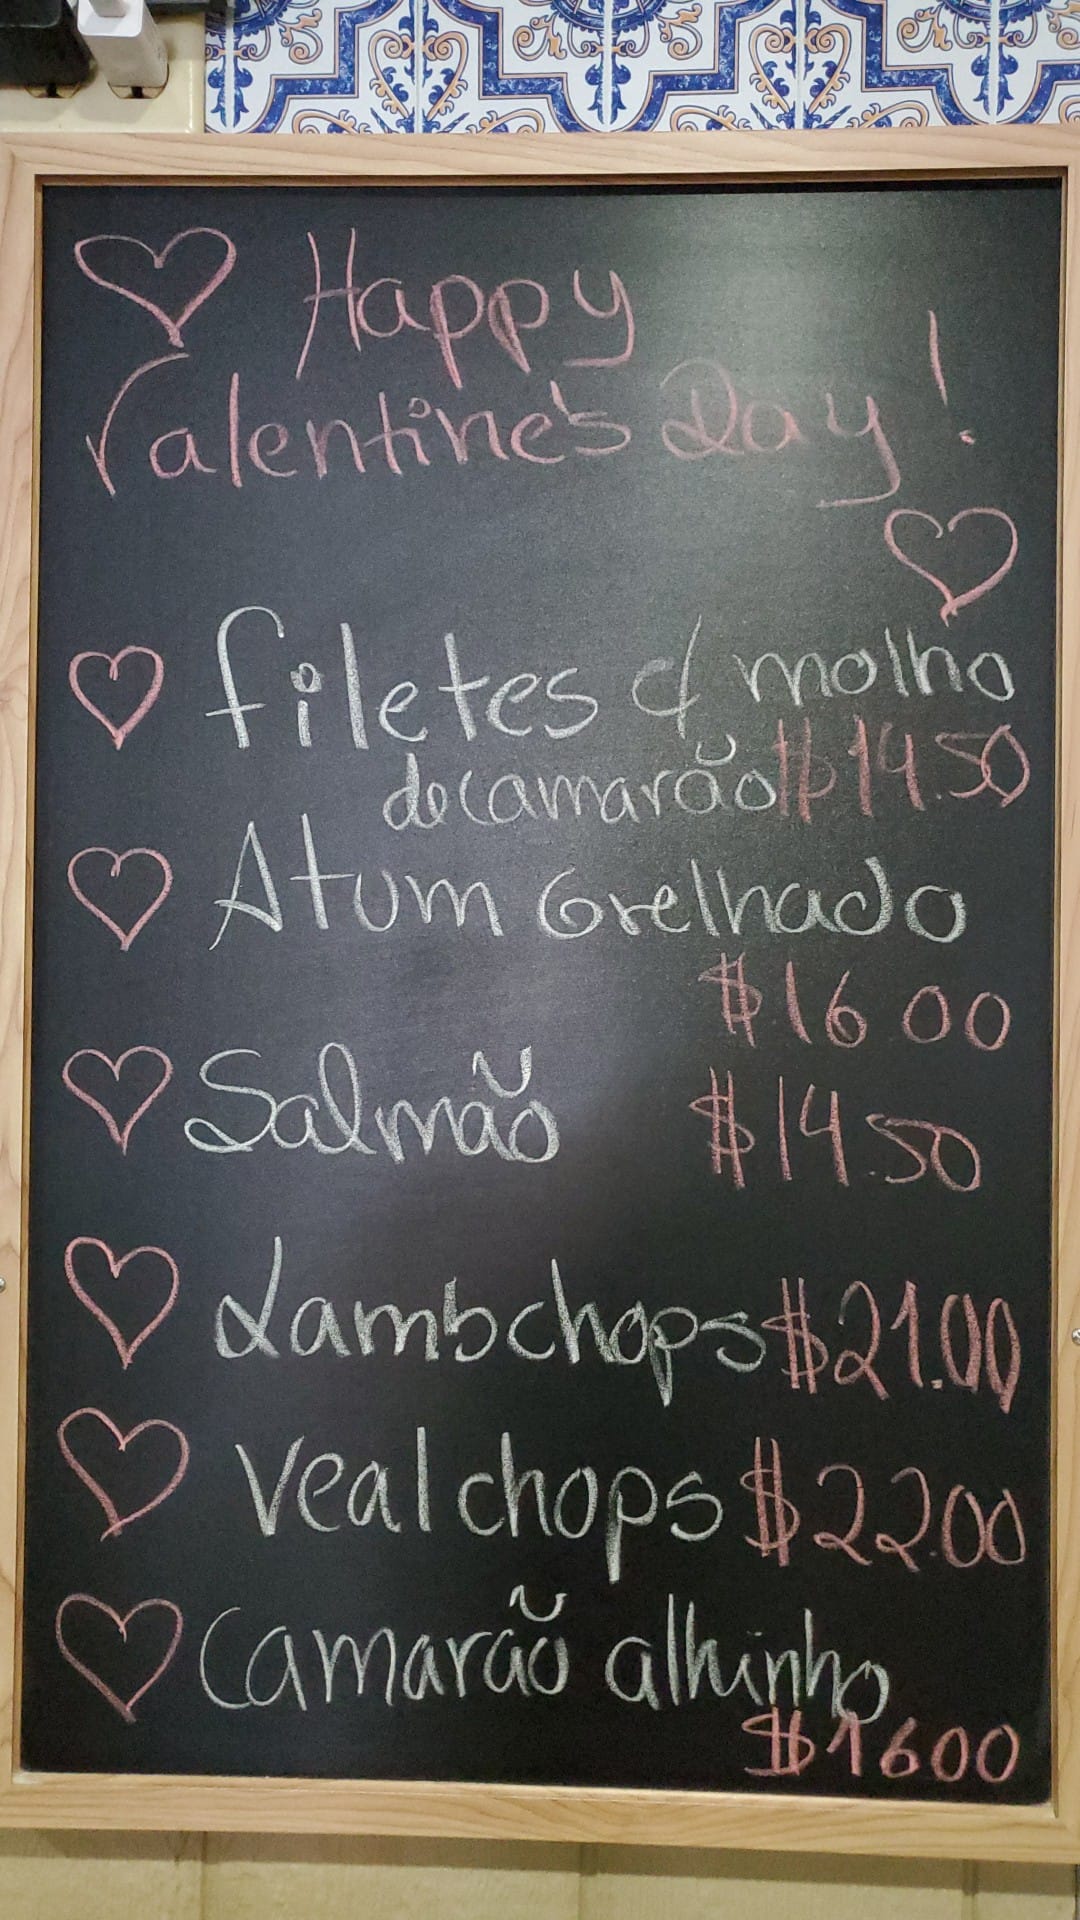 Happy
Valentine's Day!
filetes c/ molho
de camarão $14.50
Atum Grelhado
$16 00
Salmão $14.50
Lambchops $21.00
Veal chops $22.00
Camarão alhinho
$1600